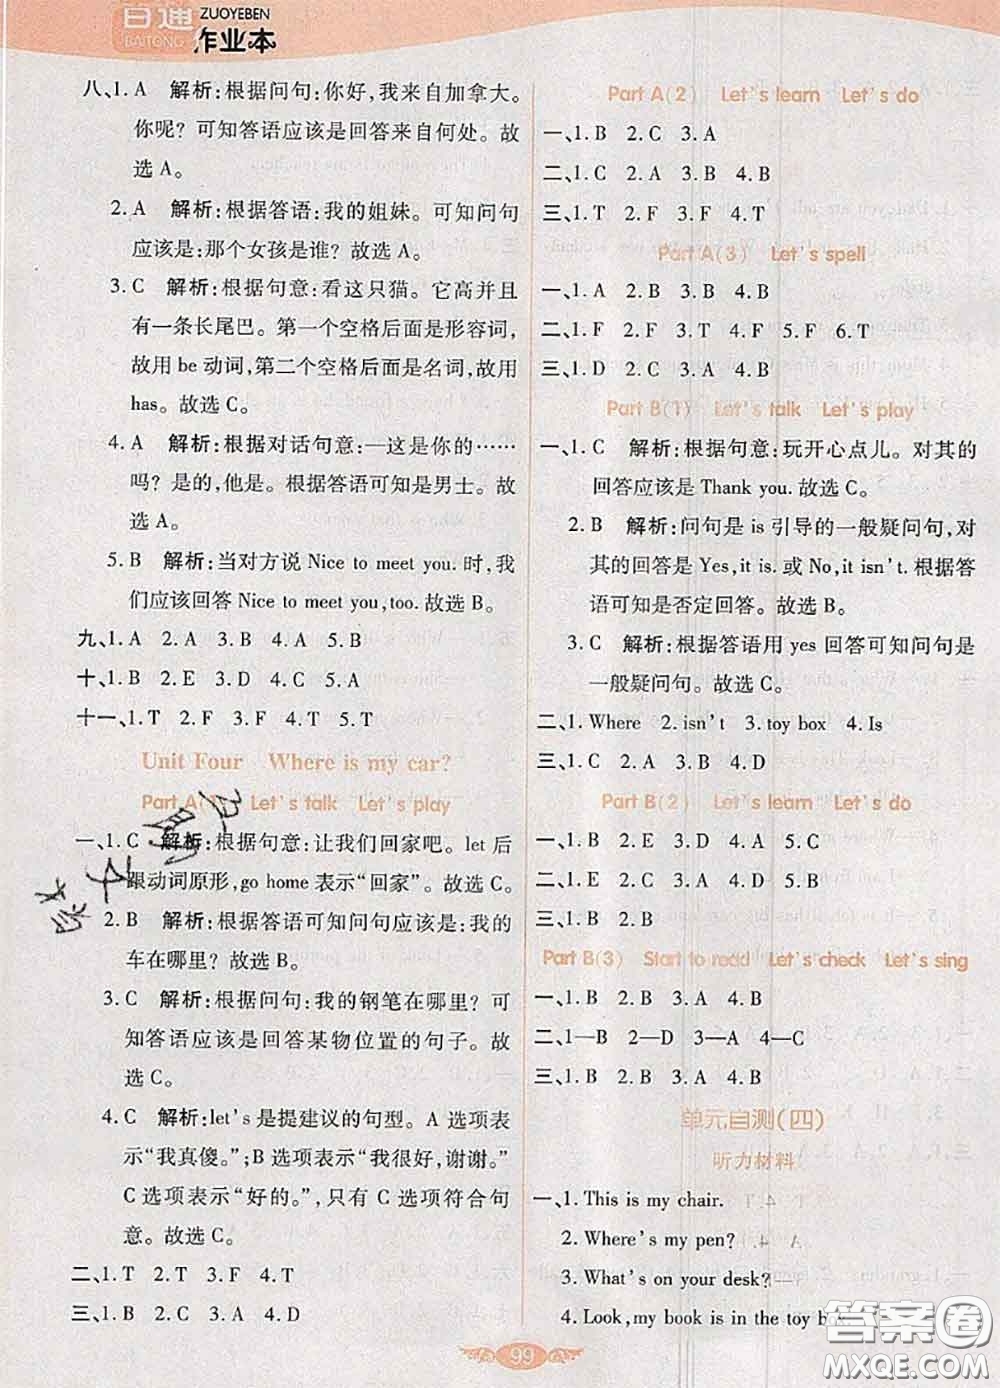 百通 ZUOYEBEN
BAITONG 作业本
八、1. A 解析:根据问句:你好,我来自加拿大。
你呢? 可知答语应该是回答来自何处。故
选 A。
2. A 解析:根据答语:我的姐妹。可知问句
应该是:那个女孩是谁? 故选 A。
3. C 解析:根据句意:看这只猫。它高并且
有一条长尾巴。第一个空格后面是形容词,
故用 be 动词,第二个空格后面是名词,故用
has。故选 C。
4. A 解析:根据对话句意:—这是你的……
吗? 是的,他是。根据答语可知是男士。故
选 A。
5. B 解析:当对方说 Nice to meet you. 时,我
们应该回答 Nice to meet you,too. 故选 B。
九、1. A 2. A 3. B 4. A 5. B
十、1. B 2. E 3. D 4. C 5. A
十一、1. T 2. F 3. F 4. T 5. T
Unit Four Where is my car?
Part A(1) Let's talk Let's play
一、1. C 解析:根据句意:让我们回家吧。let 后
跟动词原形,go home 表示“回家”。故选 C。
2. B 解析:根据答语可知问句应该是:我的
车在哪里? 故选 B。
3. C 解析:根据问句:我的钢笔在哪里? 可
知答语应该是回答某物位置的句子。故
选 C。
4. C 解析:let's 是提建议的句型。A 选项表
示“我真傻。”;B 选项表示“我很好,谢谢。”
C 选项表示“好的。”,只有 C 选项符合句
意。故选 C。
二、1. T 2. T 3. F 4. T
三、1. B 2. C 3. A 4. D
Part A(2) Let's learn Let's do
一、1. B 2. C 3. A
二、1. C 2. A 3. B 4. B
三、1. T 2. F 3. F 4. T
Part A(3) Let's spell
一、1. A 2. B 3. B 4. B
二、1. F 2. F 3. T 4. F 5. F 6. T
三、1. D 2. C 3. A 4. B
Part B(1) Let's talk Let's play
一、1. C 解析:根据句意:玩开心点儿。对其
的回答应该是 Thank you. 故选 C。
2. B 解析:问句是 is 引导的一般疑问句,对
其的回答是 Yes,it is. 或 No,it isn't. 根据答
语可知是否定回答。故选 B。
3. C 解析:根据答语用 yes 回答可知问句是
一般疑问句。故选 C。
二、1. Where 2. isn't 3. toy box 4. Is
三、1. C 2. A 3. B 4. D
Part B(2) Let's learn Let's do
一、1. B 2. E 3. D 4. A 5. C
二、1. E 2. C 3. D 4. A 5. B
三、1. B 2. B
Part B(3) Start to read Let's check Let's sing
一、1. B 2. B 3. A 4. B
二、1—B 2—D 3—A 4—C
三、1. B 2. B 3. A 4. B
单元自测(四)
听力材料
一、1. This is my chair.
2. Where's my pen?
3. What's on your desk?
4. Look,my book is in the toy
99
答案圈
MXQE.COM